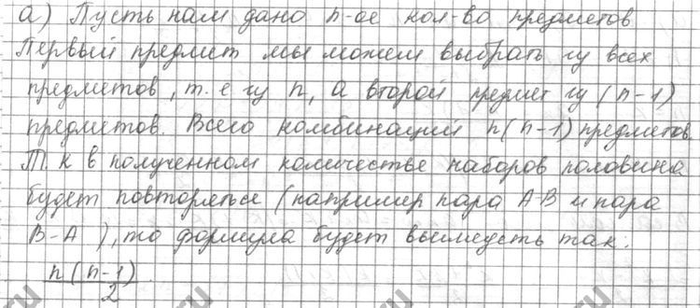 а) Пусть нам дано n-ое кол-во предметов
Первый предмет мы можем выбрать из всех
предметов, т.е из n, а второй предмет из (n-1)
предметов. Всего комбинаций n(n-1) предметов.
Т.к в полученном количестве наборов половина
будет повторяться (например пара А-В и пара
В-А), то формула будет выглядеть так:
n(n-1)
2